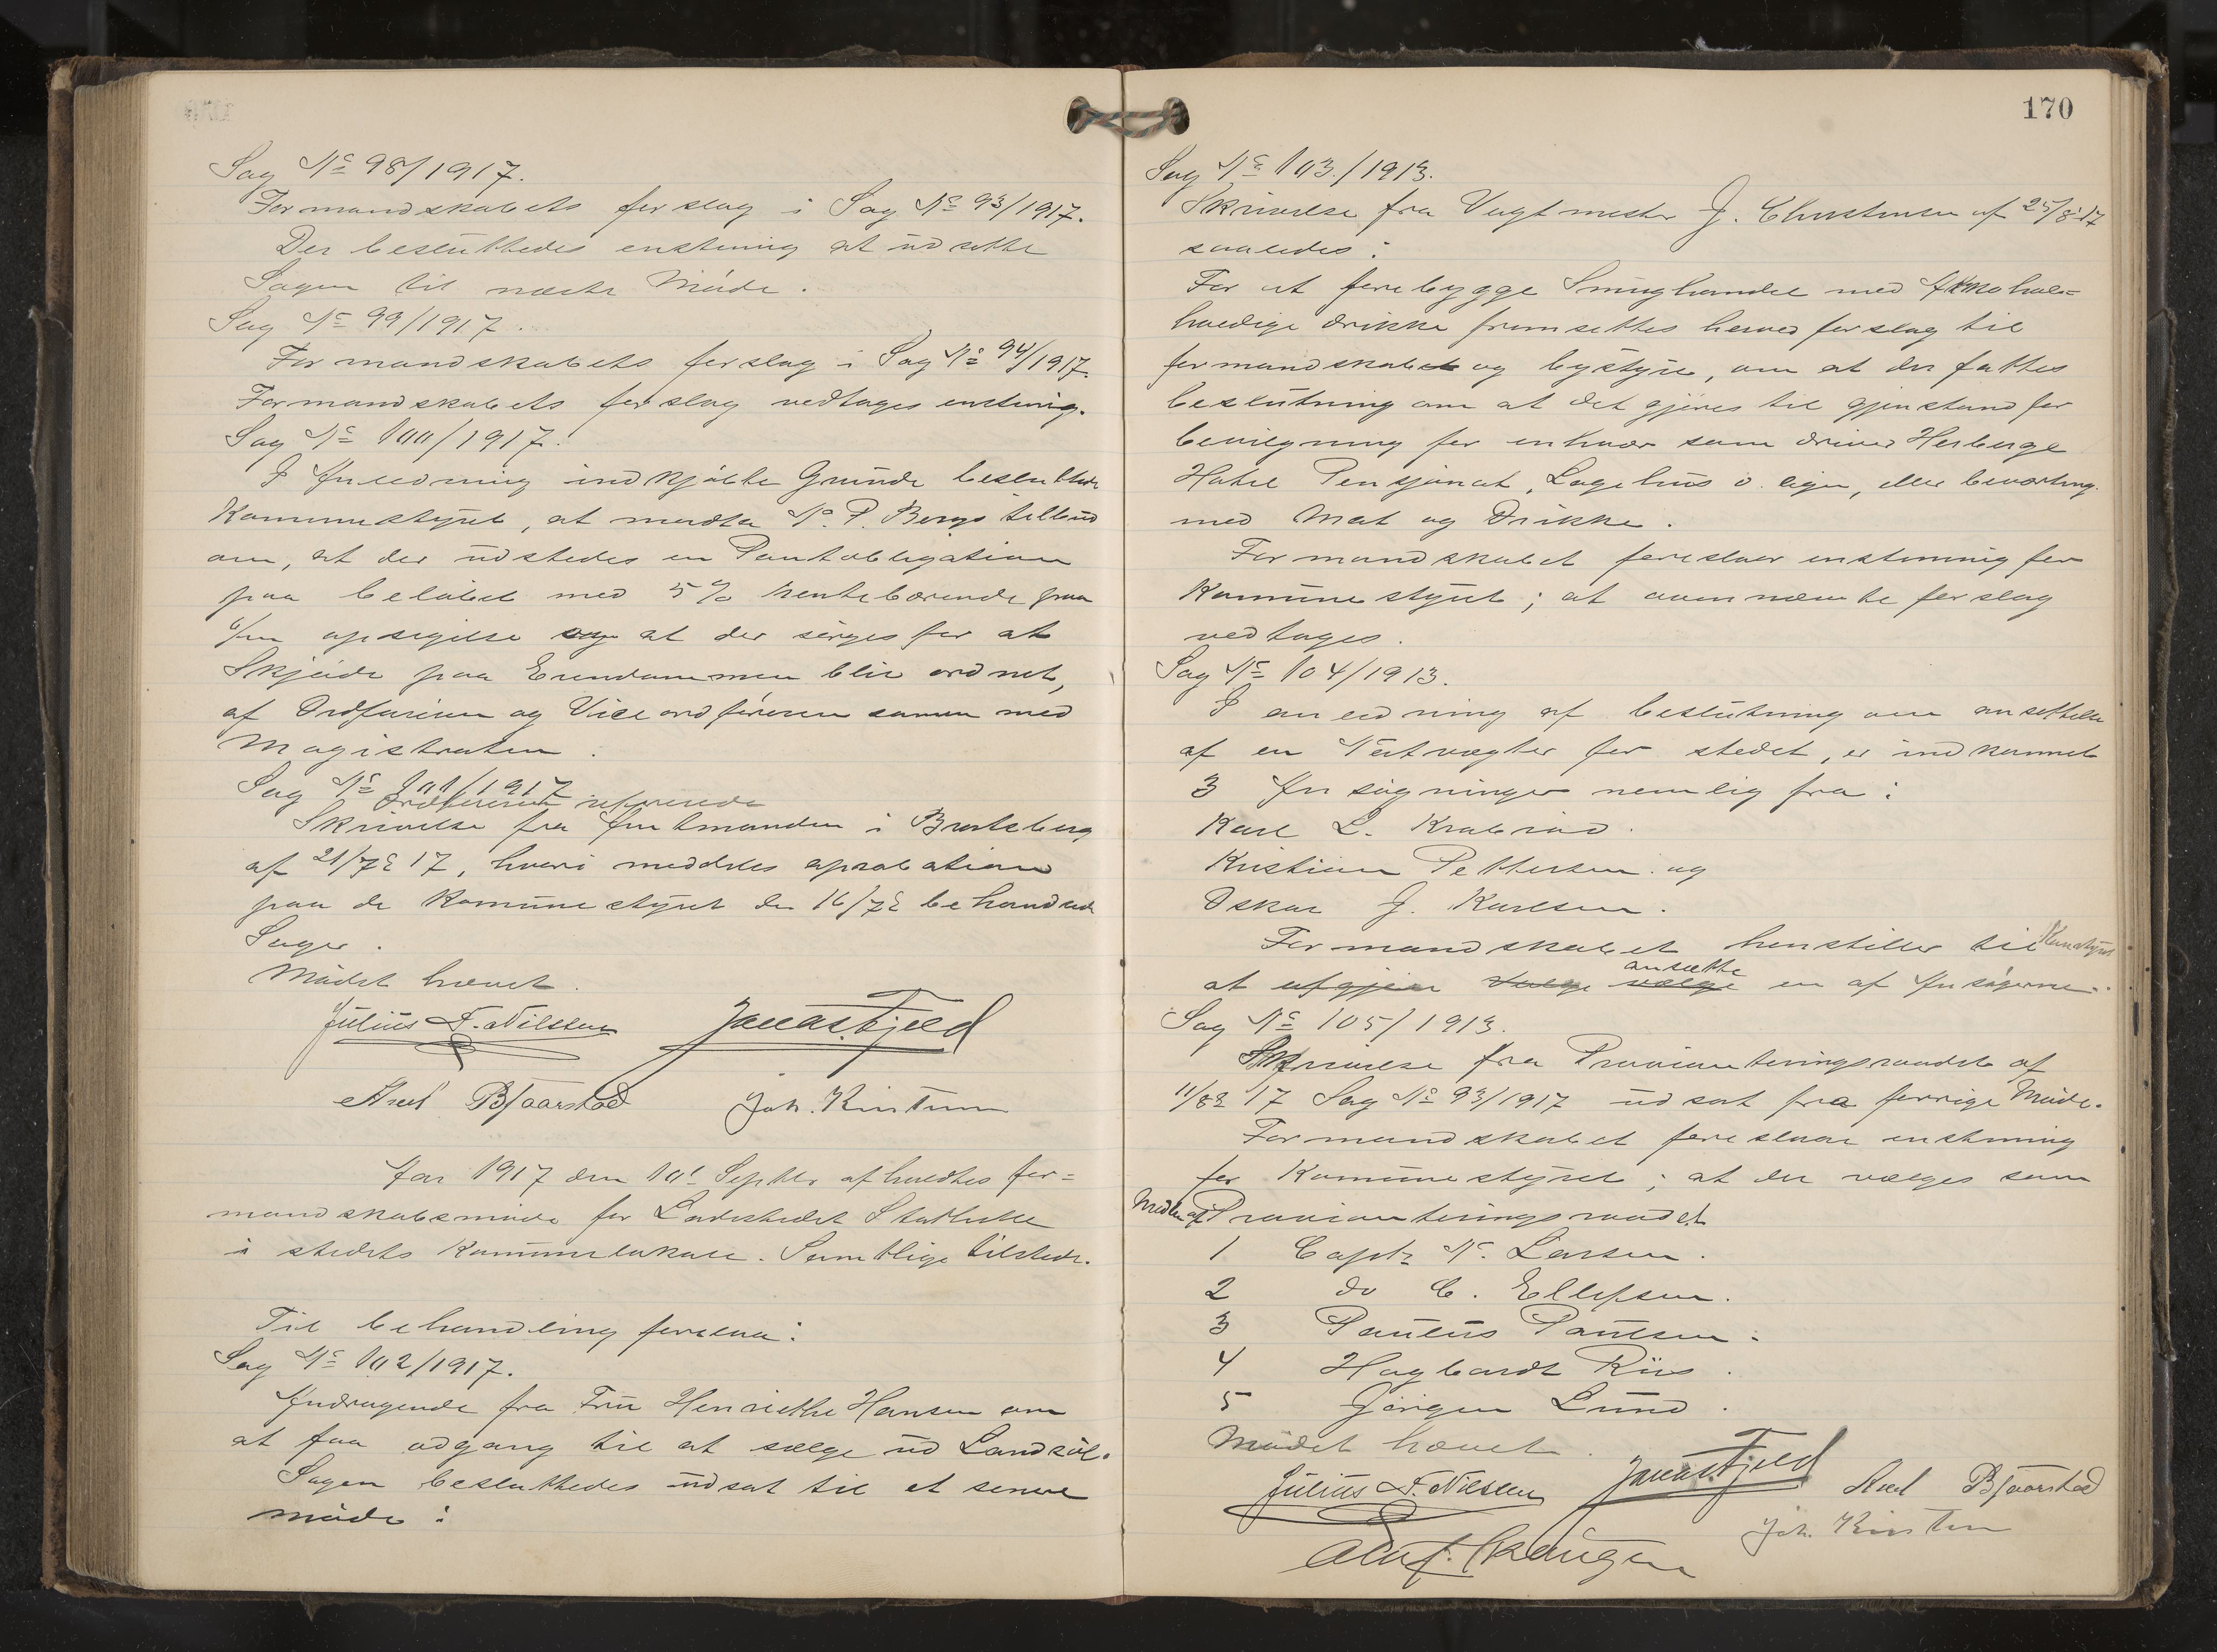 Sag No 98/1917.
Formandskabets forslag i Sag No 93/1917.
Der besluttedes enstemig at udsette
Sagen til næste Møde.
Sag No 99/1917.
Formandskabets forslag i Sag No 94/1917.
Formandskabets forslag vedtages enstemig.
Sag No 100/1917.
I Anledning indkjøbte Grunde besluttede
Kommunestyret, at modta N. P. Bergs tilbud
om, at der udstedes en Pantobligation
paa beløbet med 5 % rentebærende paa
opsigelse og at der sørges for at
Skjøde paa Eiendommen blir ordnet,
af Ordføreren og Viceordføreren samen med
Magistraten.
Sag No 101/1917
Ordføreren refererede
Skrivelse fra Amtmanden i Bratsberg
af 21/7 17, hvori meddeles aprobation
paa de Kommunestyret den 16/7 behandlede
Sager.
Mødet hævet.
Julius F. Nilssen Jonas Fjeld
Axel Bjaarstad Joh. Kirstum
Aar 1917 den 10' Septbr afholdtes for=
mandskabsmøde for Ladestedet Stathelle
i stedets Kommunelokale. Samtlige tilstede.
Til behandling forelaa:
Sag No 102/1917.
Andragende fra Fru Henriette Hansen om
at faa adgang til at sælge ud Landsøl.
Sagen besluttedes udsat til et senere
møde:
170
Sag No 103/1913.
Skrivelse fra Vagtmester J. Christensen af 25/8 17
saaledes:
For at forebygge Smughandel med Alkohol=
holdige drikke fremsettes herved forslag til
formandskabet og bystyre, om at der fattes
beslutning om at det gjøres til gjenstand for
bevilgning for enhver som driver Herberge
Hotel Pensjonat, Logihus o. lign, eller bevertning
med Mat og Drikke.
Formandskabet foreslaar enstemmig for
Kommunestyret; at ovennævnte forslag
vedtages.
Sag No 104/1913.
I anledning af beslutning om ansettelse
af en Natvægter for stedet, er indkommet
3 Ansøgninger nemlig fra:
Karl L. Krabrød.
Kristian Pettersen og
Oskar J. Karlsen.
Formandskabet henstiller til Komstyret
at afgjøre vælge vælge ansætte en af Ansøgerne.
Sag No 105/1913.
Skrivelse fra Provianteringsraadet af
11/8 17 Sag No 93/1917 udsat fra forrige Møde.
Formandskabet foreslaar enstemmig
for Kommunestyret; at der vælges som
Medlem af Provianteringsraadet
1 Capt. N. Larsen.
2 do C. Ellefsen.
3 Paulus Paulsen.
4 Hagbardt Riis.
5 Jørgen Lund.
Mødet hævet.
Julius F. Nilssen Jonas Fjeld Axel Bjaarstad
Joh. Kirstum
Oluf Skaugen